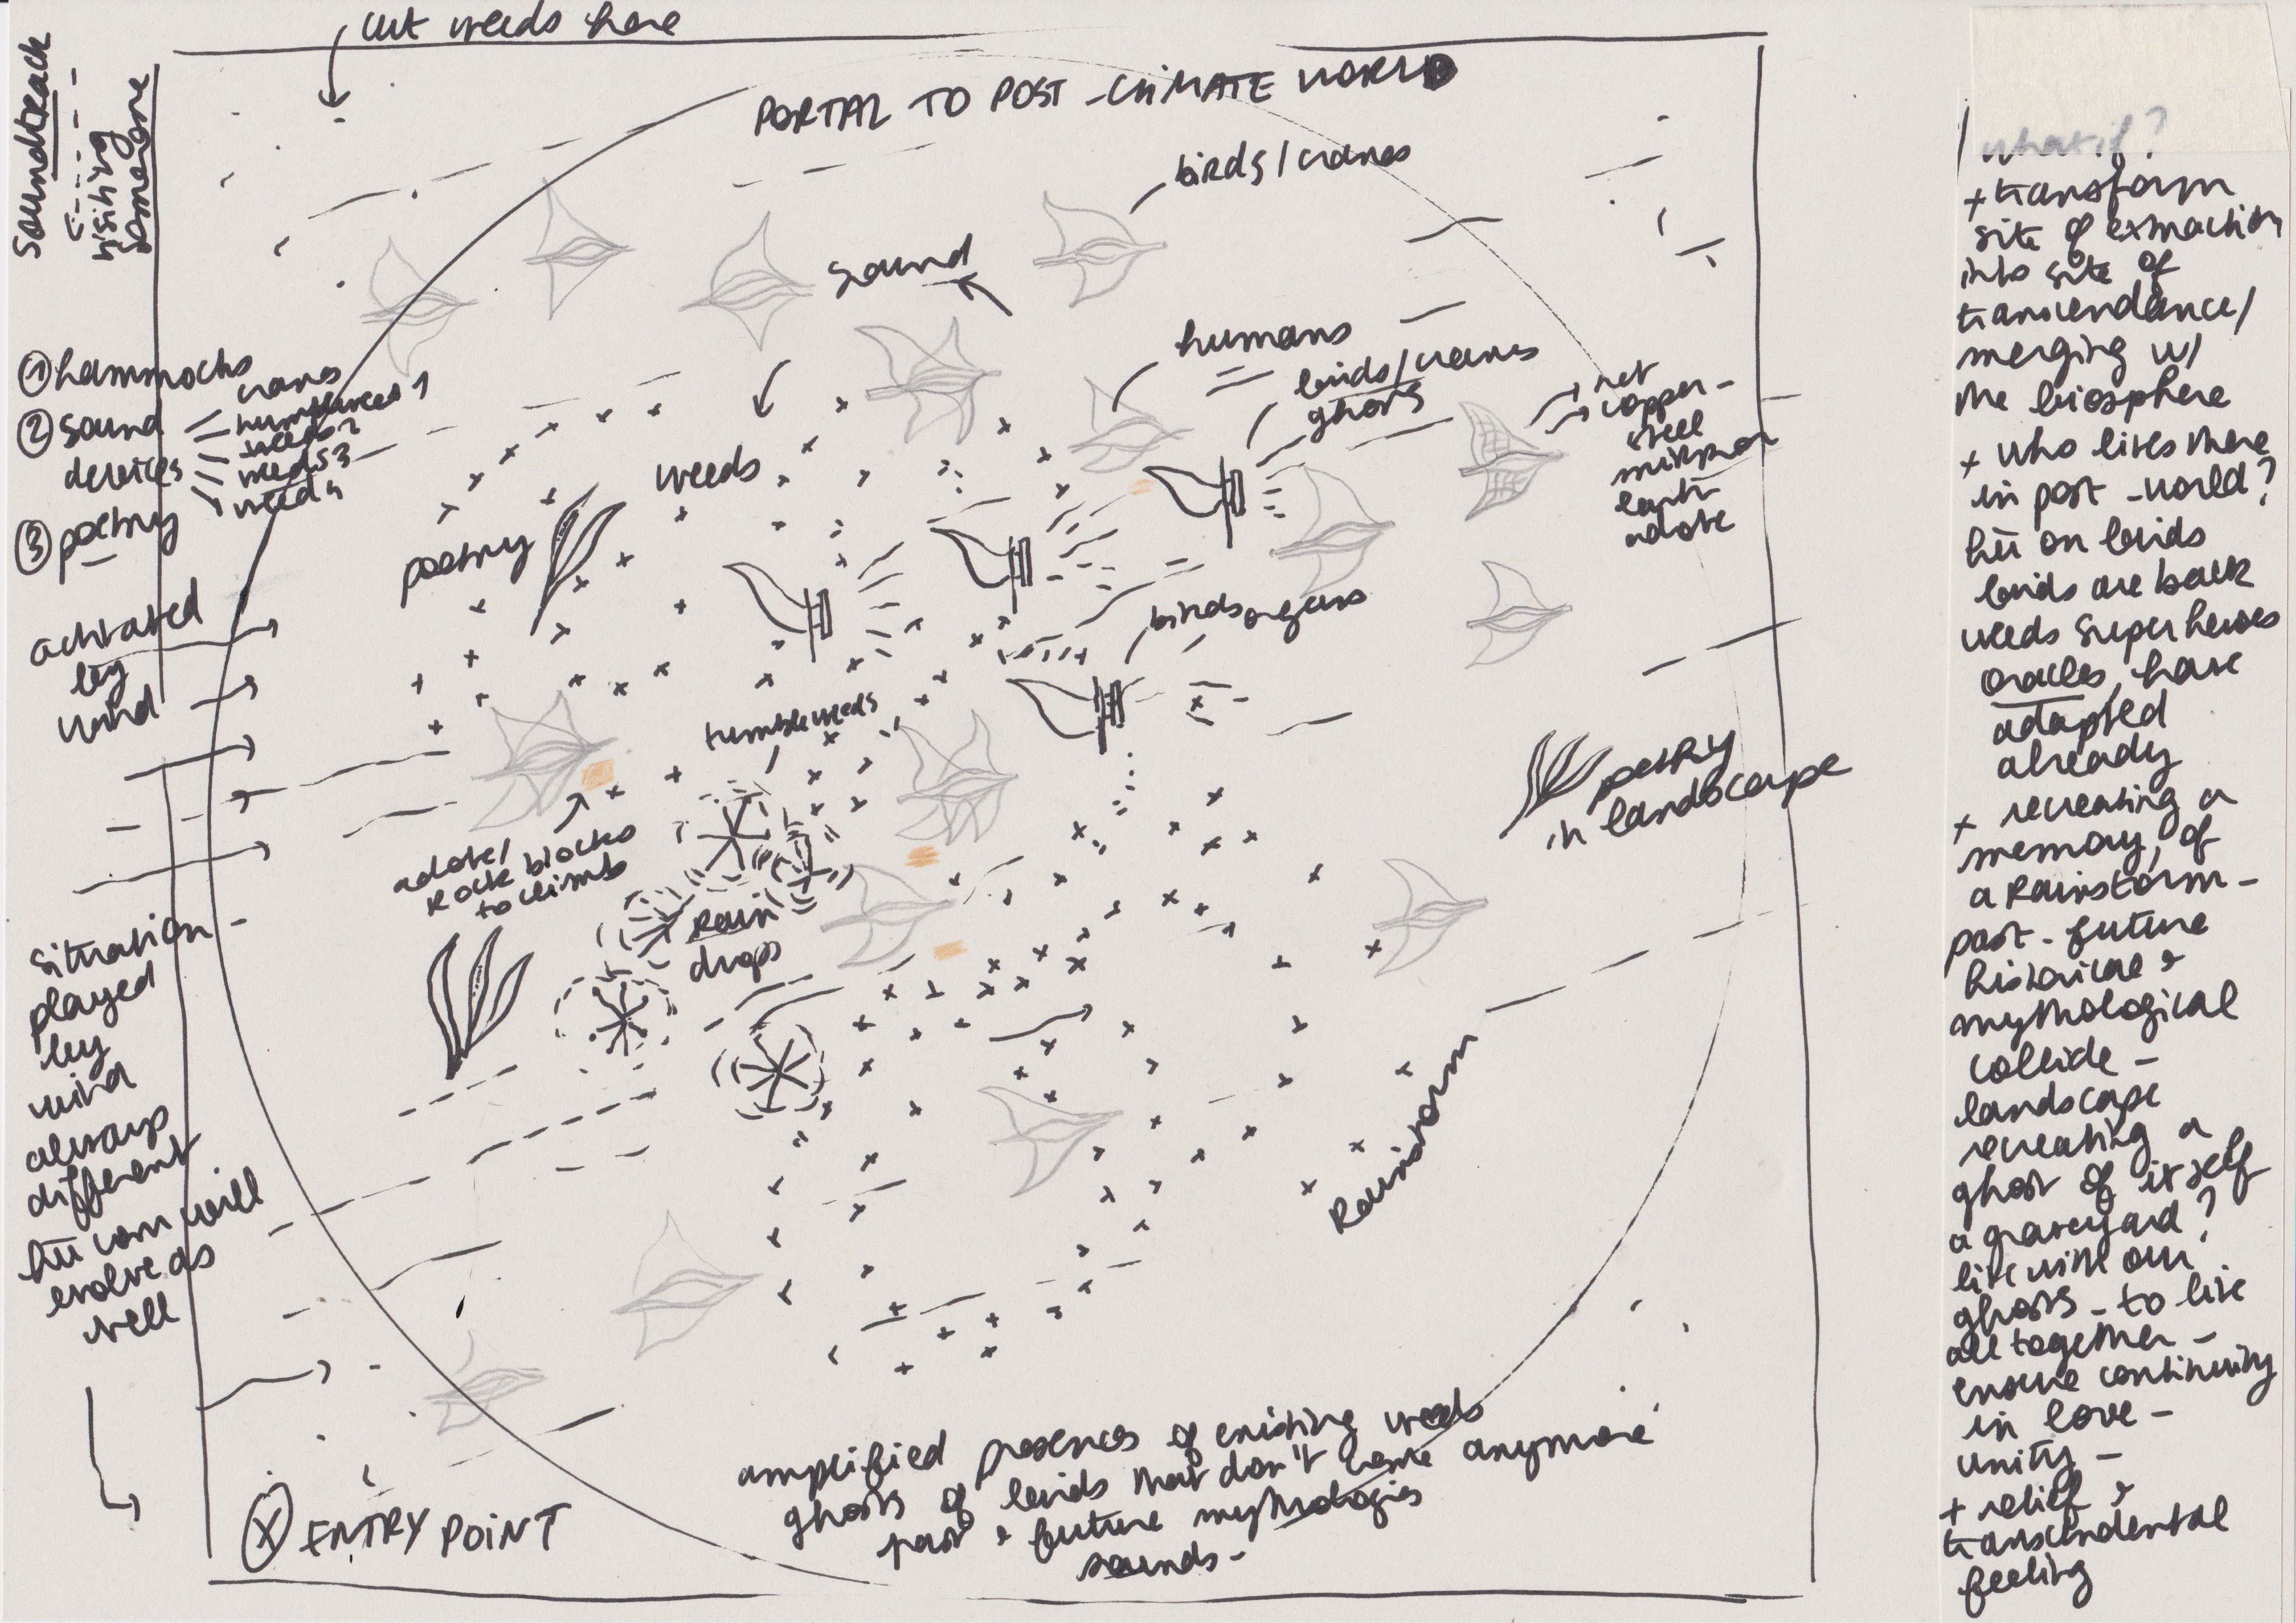 cut weeds here
PORTAL TO POST-CLIMATE WORLD
soundtrack
visiting
someone
birds/cranes
sound
humans
birds/cranes
ghosts
net
copper-
steel
earth
adobe
① hammocks
② sound
devices
cranes
tumbleweed 1
weeds 2
weeds 3
weed 4
③ poetry
weeds
poetry
activated
by
wind
birds organs
tumbleweeds
adobe/
rock blocks
to climb
rain
drops
poetry
in landscape
Rainstorm
situation -
played
by
wind
always
different
but corn will
evolve as
well
amplified presences of existing weeds
ghosts of birds that don't come anymore
past & future mythologies
sounds -
ⓧ ENTRY POINT
what if?
+ transform
site of extraction
into site of
transcendance/
merging w/
the biosphere
+ who lives there
in post-world?
birds
birds are back
weeds superheroes
oracles, have
adapted
already
+ recreating a
memory, of
a Rainstorm -
past - future
historical &
mythological
collide -
landscape
recreating a
ghost of itself
a graveyard?
live with our
ghosts - to live
all together -
ensure continuity
in love -
unity -
+ relief &
transcendental
feeling